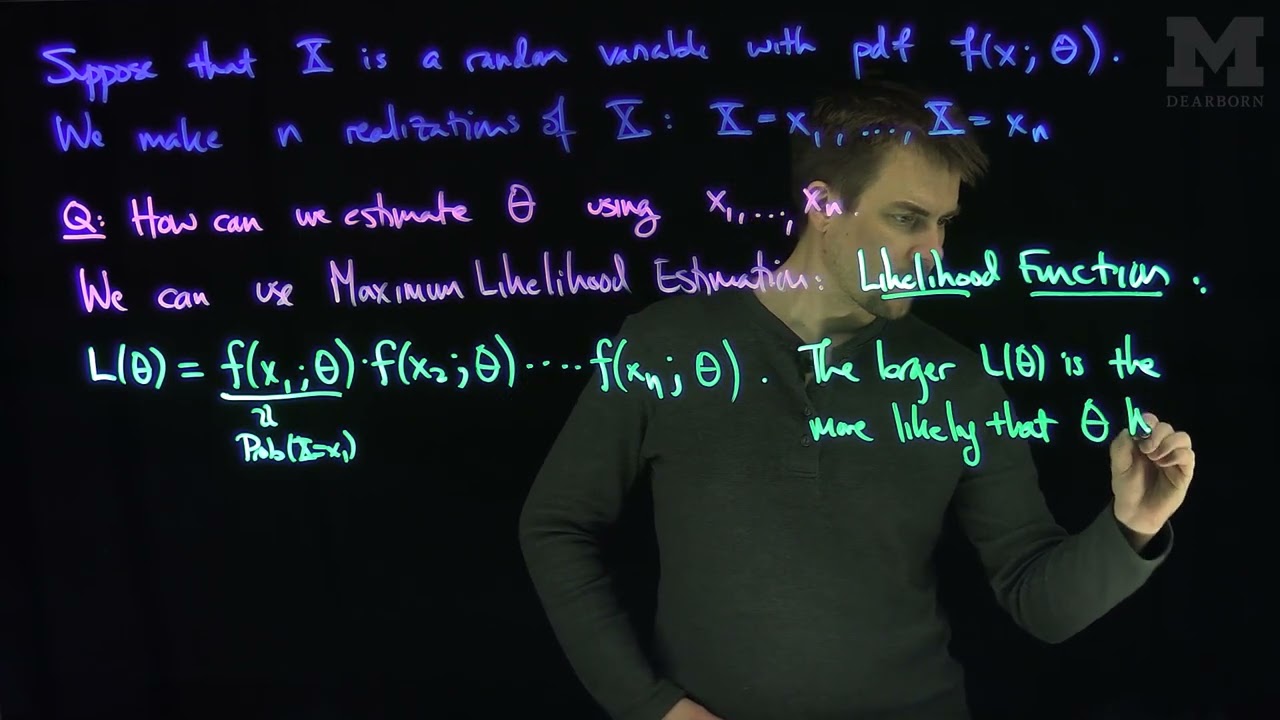 Suppose that X is a random variable with pdf f(x; θ).
We make n realizations of X: X = x₁, ..., X = xₙ
Q: How can we estimate θ using x₁, ..., xₙ.
We can use Maximum Likelihood Estimation: Likelihood Function:
L(θ) = f(x₁; θ) · f(x₂; θ) · ... · f(xₙ; θ). The larger L(θ) is the
more likely that θ
≈
Prob(X=x₁)
M
DEARBORN